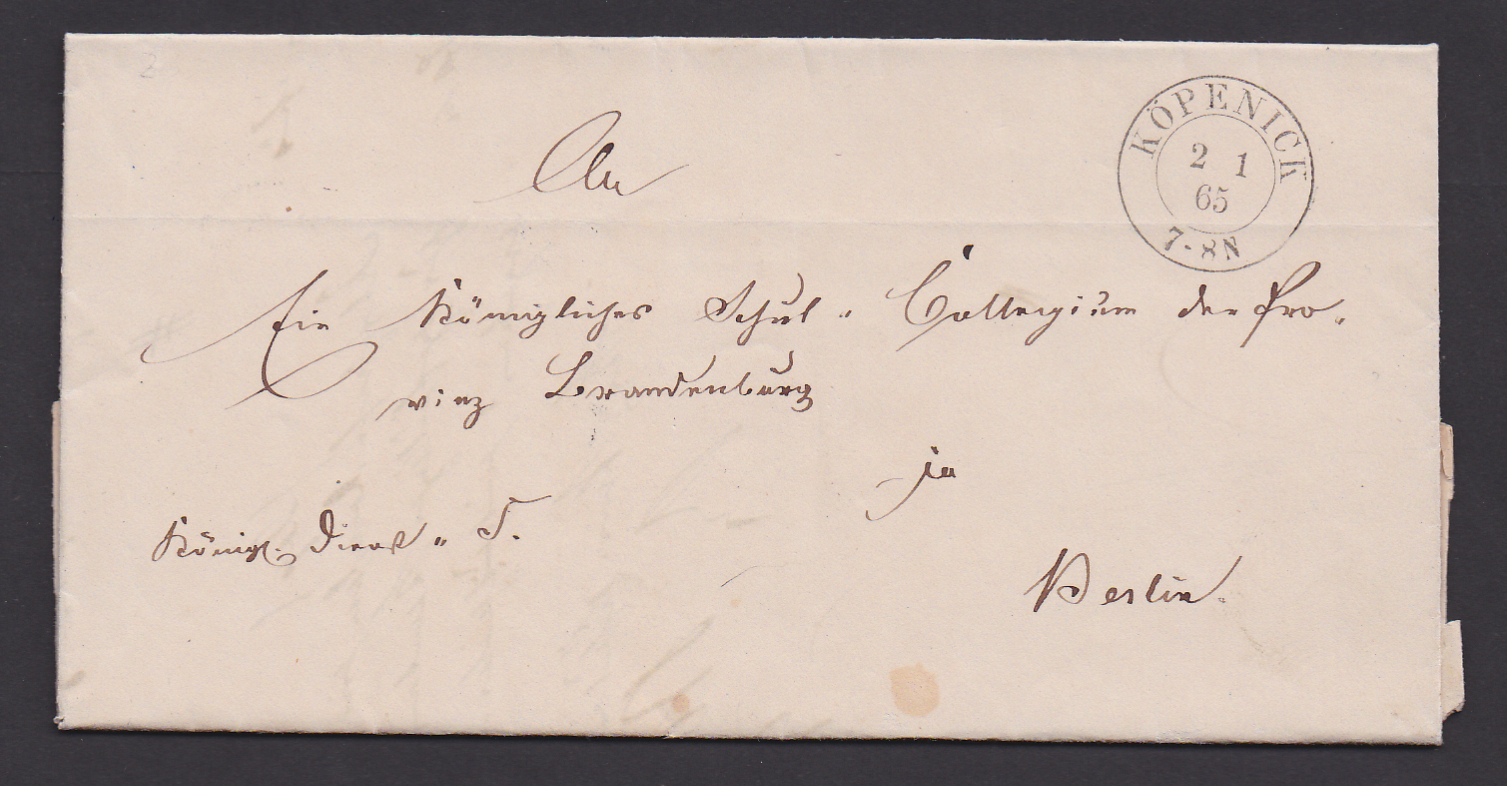 KÖPENICK
2 1
65
7-8N
An
Ein Königliches Schul- Collegium der Pro-
vinz Brandenburg
in
Königl. Dienst- S.
Berlin.